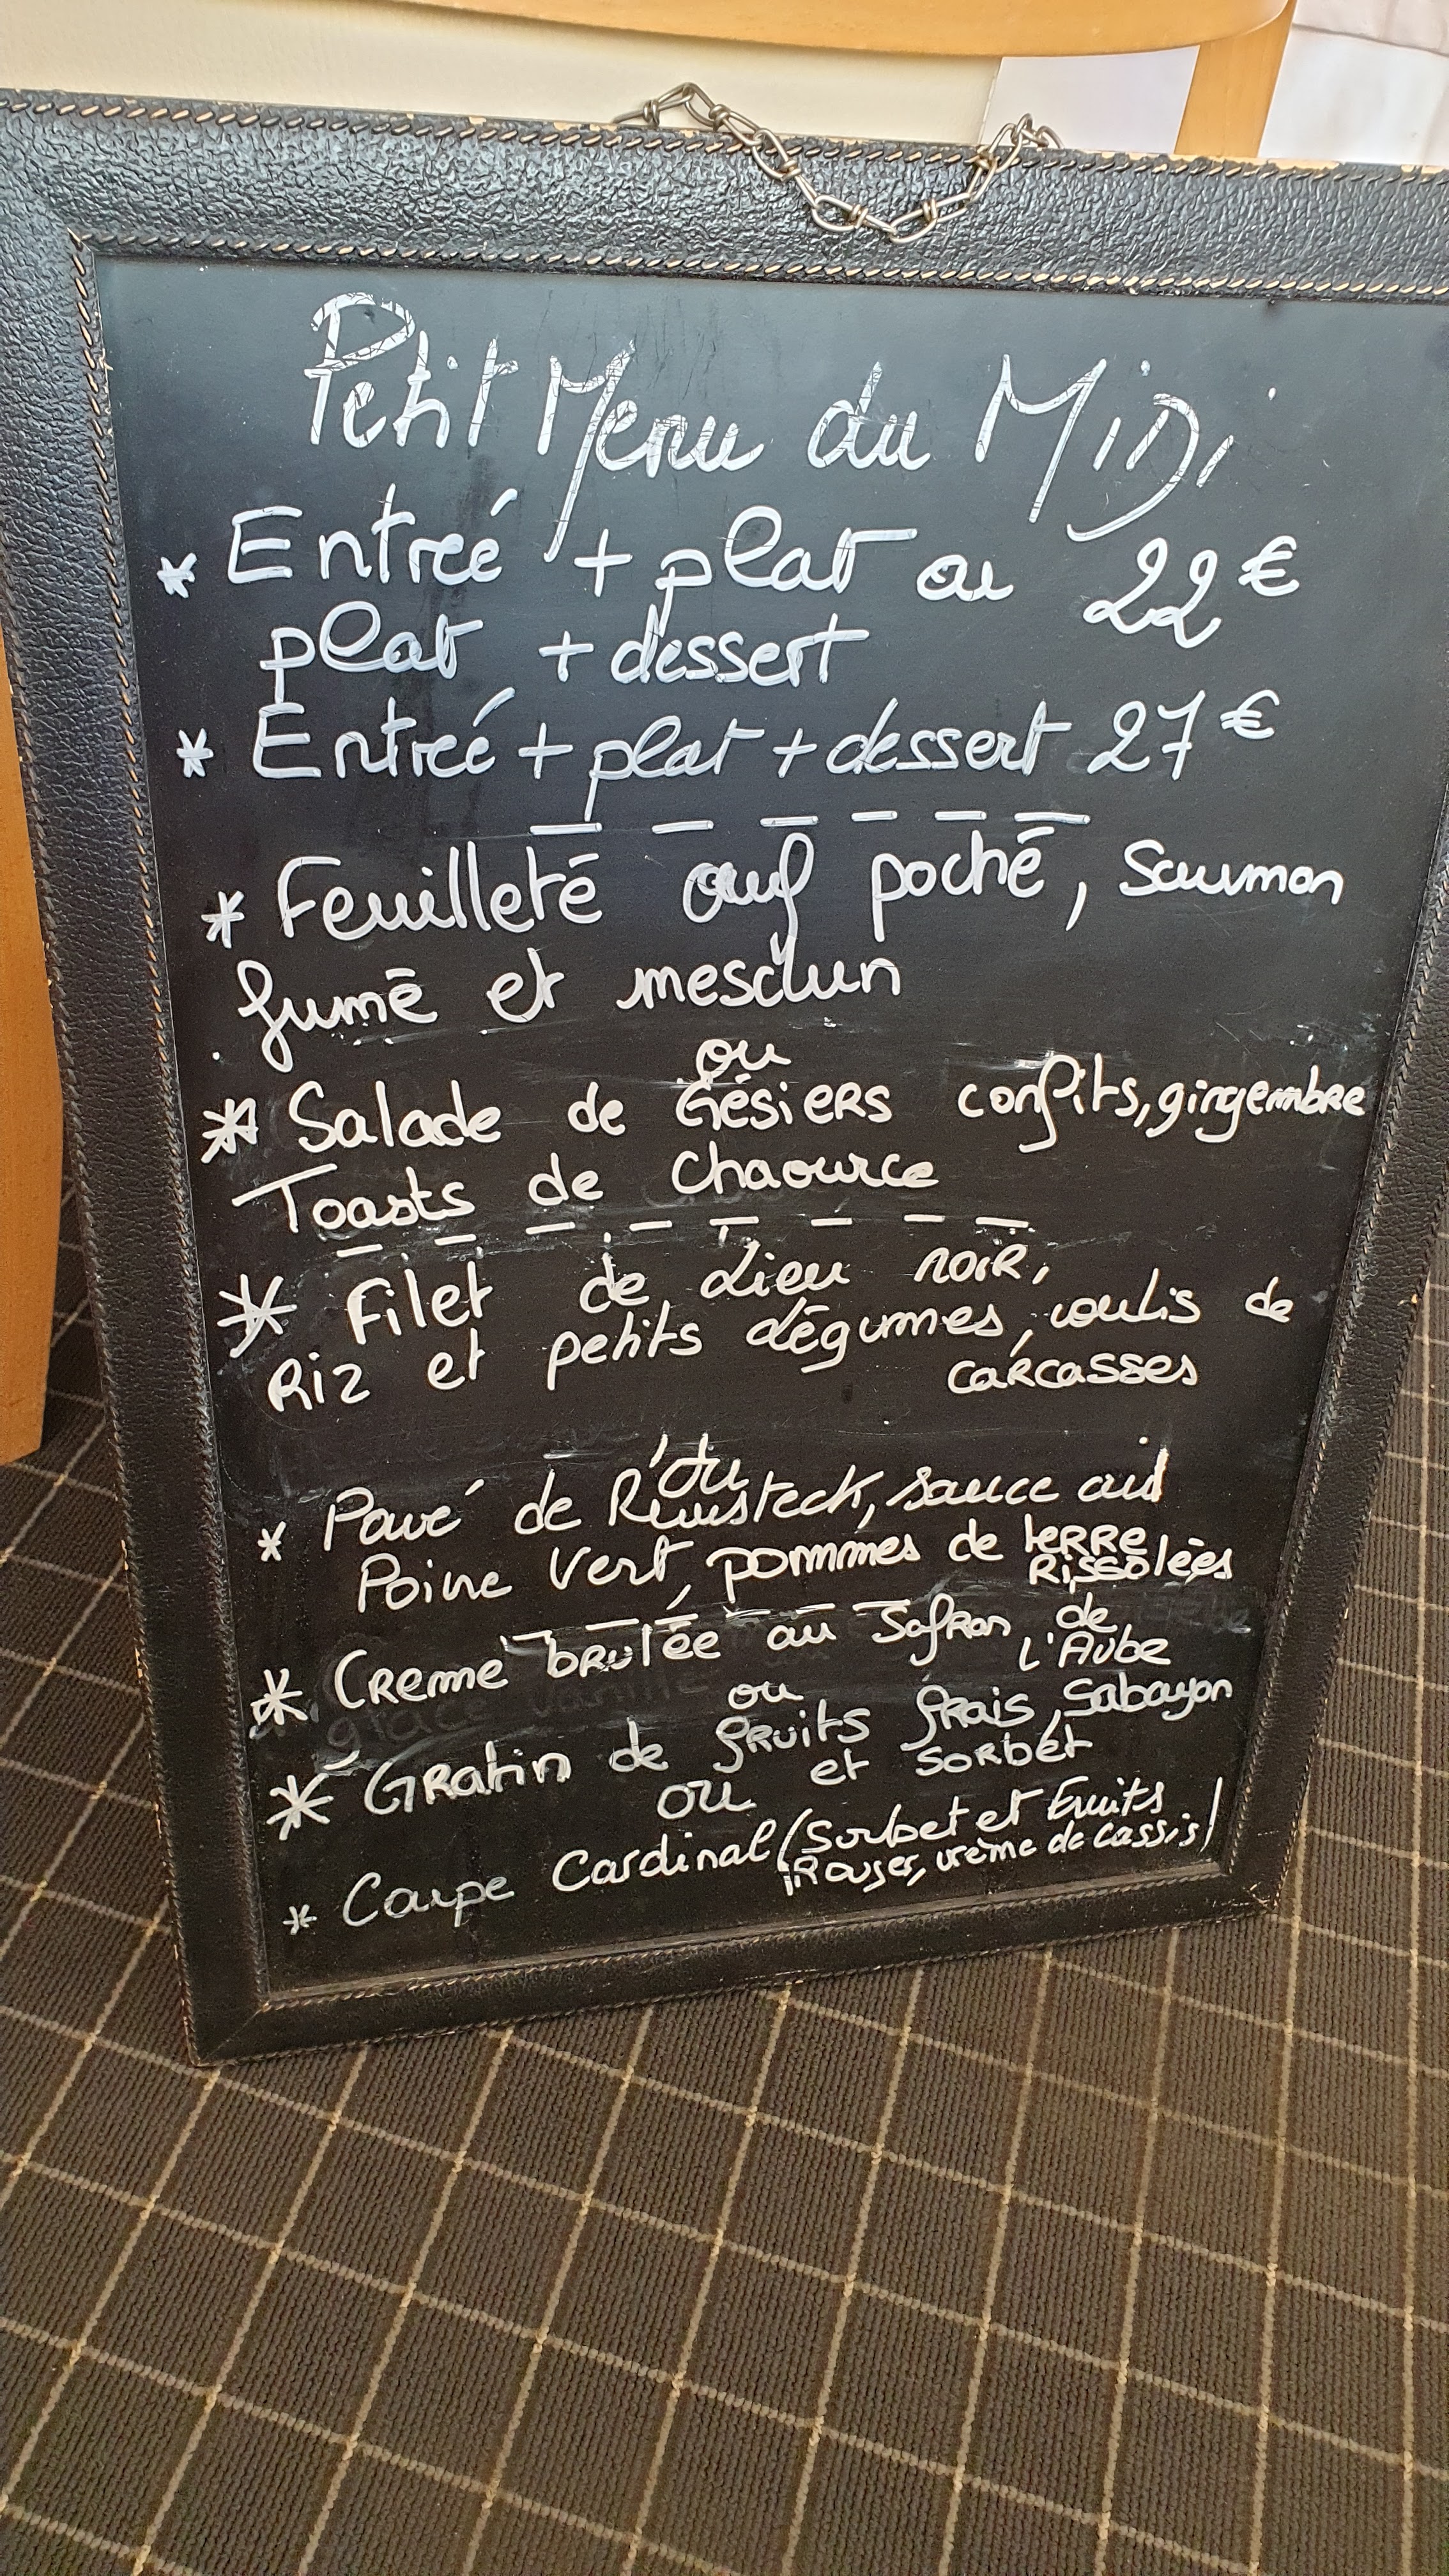 Petit Menu du MiDi
* Entreé + plat ou 22€
plat + dessert
* Entreé + plat + dessert 27€
* Feuilleté œuf poché, Saumon
fumé et mesclun
ou
* Salade de Gésiers confits, gingembre
Toasts de Chaource
* Filet de Lieu noir,
Riz et petits Légumes, coulis de
carcasses
ou
* Pavé de Rumsteck, sauce au
Poivre Vert, pommes de terre
Rissolées
* Creme brulée au Safran de
L'Aube
ou
* Gratin de fruits frais, Sabayon
et sorbet
ou
* Coupe Cardinal (Sorbet et Fruits
Rouges, crème de cassis)